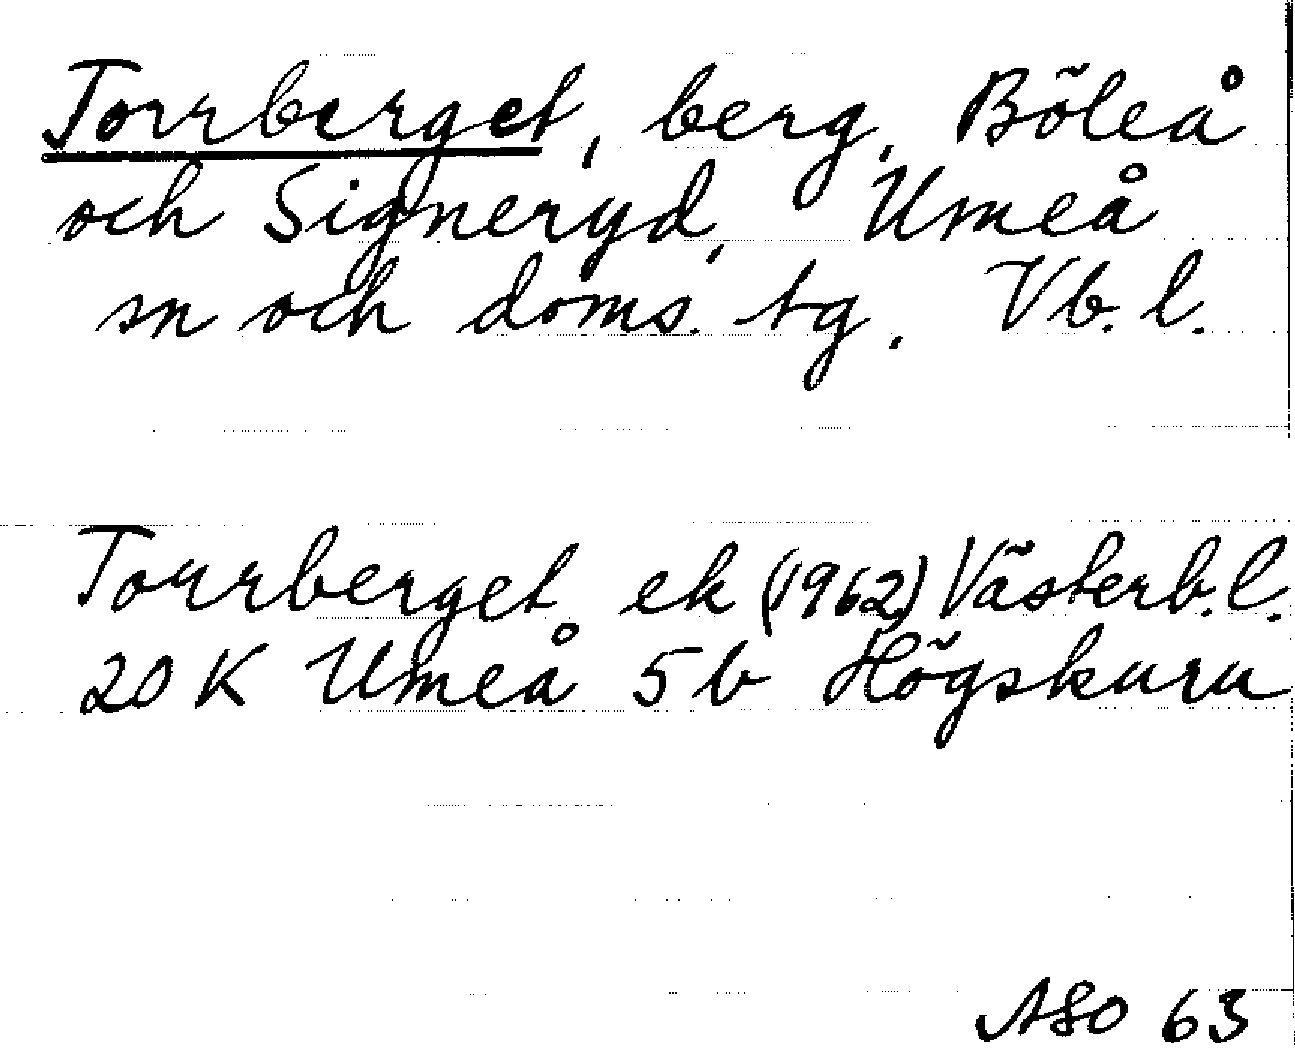 Torrberget, berg, Böleå
och Signeryd, Umeå
sn och doms. tg. Vb. l.
Torrberget ek (1962) Västerb. l.
20 K Umeå 5 b Högskuru
ASO 63